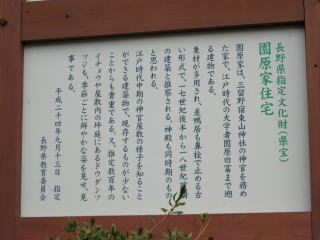 長野県指定文化財（県宝）
園原家住宅
園原家は、三留野宿東山神社の神官を務め
た家で、江戸時代の大学者園原旧富まで遡
る建物である。
栗材が多用され、差鴨居も鼻栓で止める古
い形式で、一七世紀後半から一八世紀
の建築と推察される。神殿も同時期のもの
と思われる。
江戸時代中期の神官屋敷の様子を知ること
ができる建築物で、現存するものが少ない
ことからも貴重である。又、推定数百年の
イチョウや屋敷内の坪庭にあるドウダンツ
ツジも、季節ごとに鮮やかな姿を見せ、見
事である。
平成二十四年九月十三日 指定
長野県教育委員会